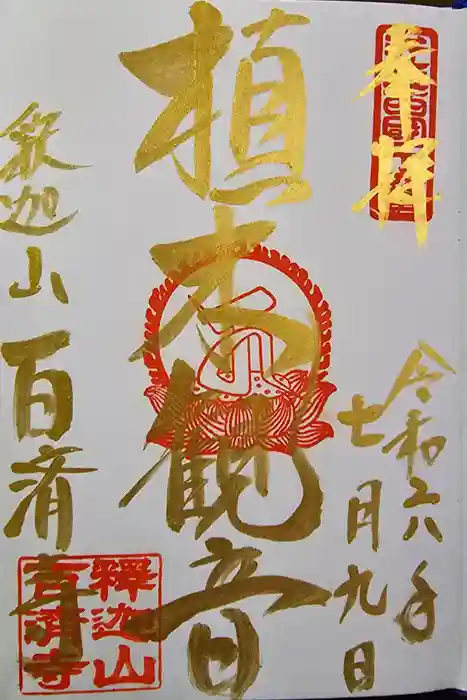 奉拝
令和六年
七月九日
植木観音
釈迦山
百済寺
釋迦山
百濟寺